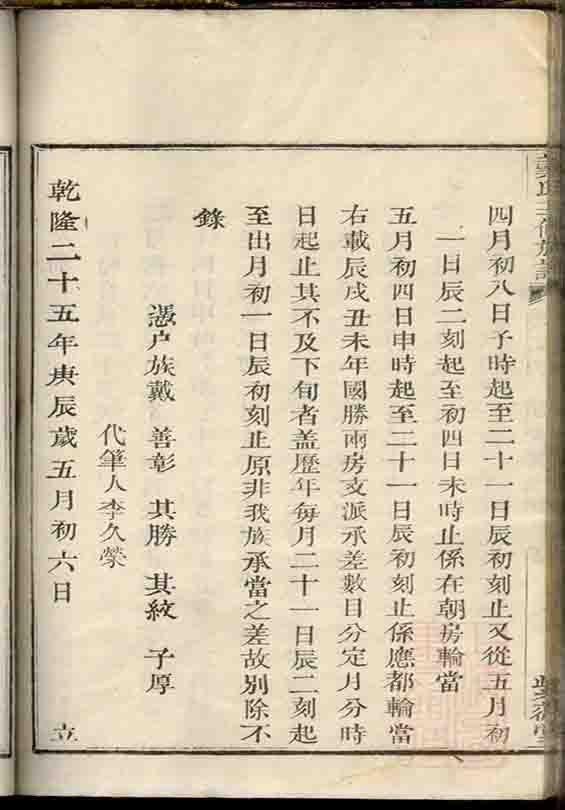 四月初八日子時起至二十一日辰初刻止又從五月初
一日辰二刻起至初四日未時止係在朝房輪當
五月初四日申時起至二十一日辰初刻止係應都輪當
右載辰戌丑未年國勝兩房支派承差數目分定月分時
日起止其不及下旬者盖歷年每月二十一日辰二刻起
至出月初一日辰初刻止原非我族承當之差故別除不
錄
憑户族戴 善彰 其勝 其紋 子厚
代筆人李久榮
乾隆二十五年庚辰歲五月初六日 立